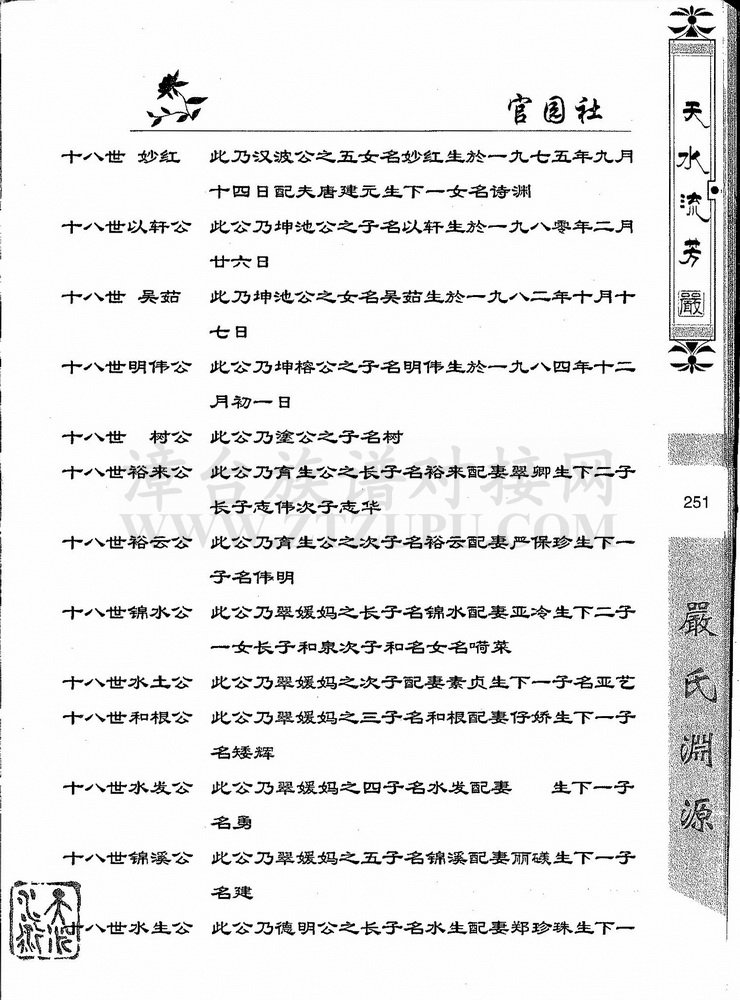 官园社
十八世 妙红 此乃汉波公之五女名妙红生於一九七五年九月
十四日配夫唐建元生下一女名诗渊
十八世以轩公 此公乃坤池公之子名以轩生於一九八零年二月
廿六日
十八世 吴茹 此乃坤池公之女名吴茹生於一九八二年十月十
七日
十八世明伟公 此公乃坤榕公之子名明伟生於一九八四年十二
月初一日
十八世 树公 此公乃塗公之子名树
十八世裕来公 此公乃育生公之长子名裕来配妻翠卿生下二子
长子志伟次子志华
十八世裕云公 此公乃育生公之次子名裕云配妻严保珍生下一
子名伟明
十八世锦水公 此公乃翠媛妈之长子名锦水配妻亚冷生下二子
一女长子和泉次子和名女名嗬菜
十八世水土公 此公乃翠媛妈之次子配妻素贞生下一子名亚艺
十八世和根公 此公乃翠媛妈之三子名和根配妻仔娇生下一子
名矮辉
十八世水发公 此公乃翠媛妈之四子名水发配妻 生下一子
名勇
十八世锦溪公 此公乃翠媛妈之五子名锦溪配妻丽碤生下一子
名建
十八世水生公 此公乃德明公之长子名水生配妻郑珍珠生下一
天水流芳
嚴
251
嚴氏淵源
漳台族谱对接网
WWW.ZTZUPU.COM